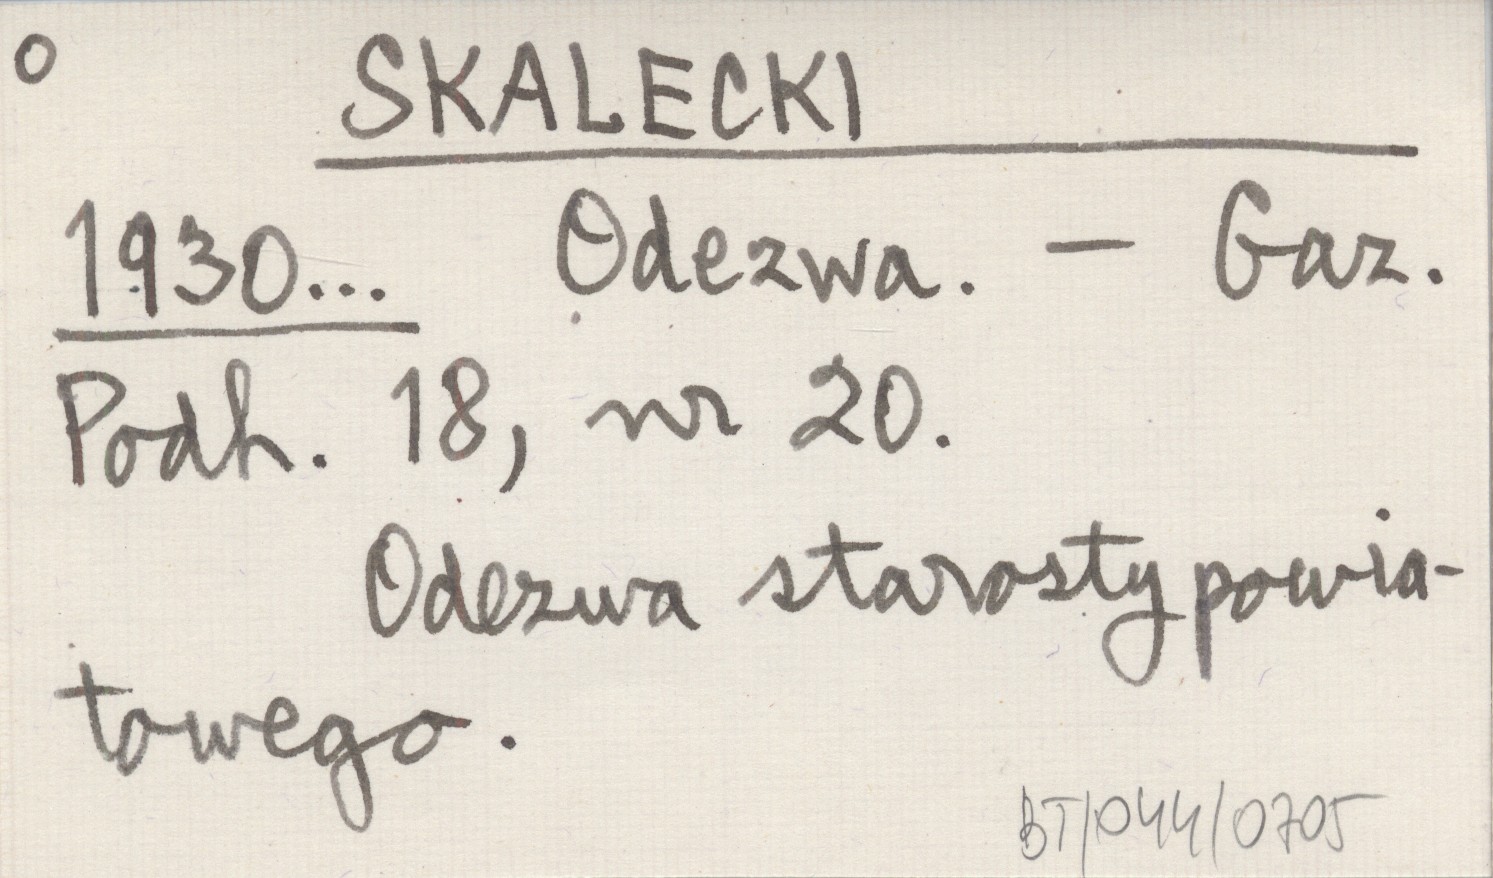 O SKALECKI
1930... Odezwa. – Gaz.
Podh. 18, nr 20.
Odezwa starosty powia-
towego.
BT/044/0705